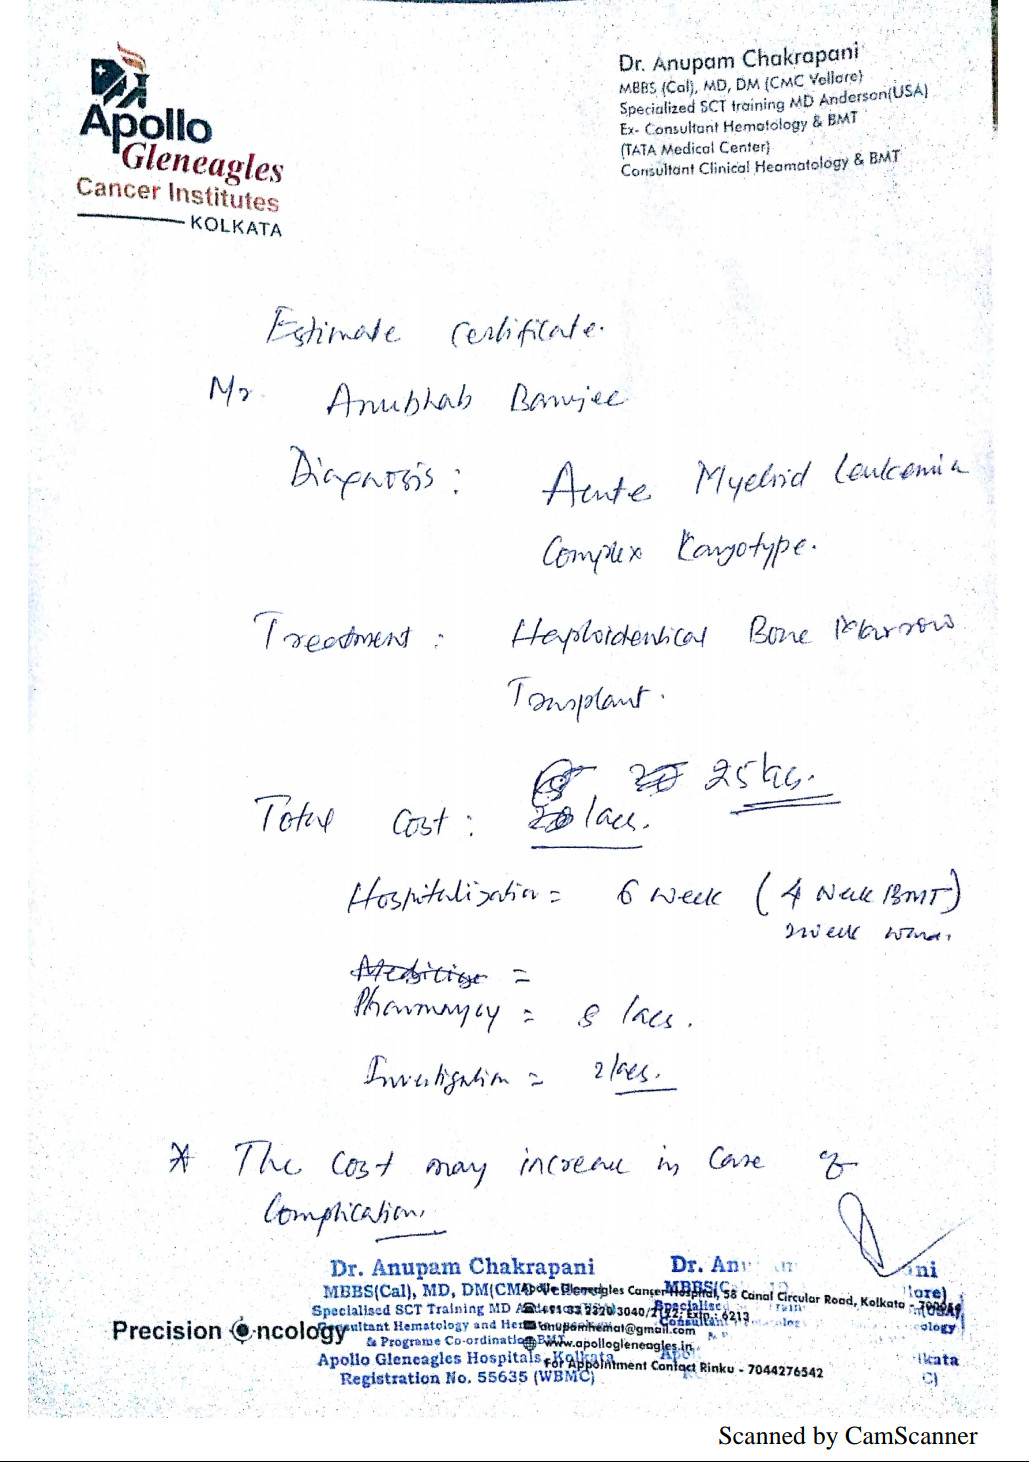 Apollo
Gleneagles
Cancer Institutes
KOLKATA
Dr. Anupam Chakrapani
MBBS (Cal), MD, DM (CMC Vellore)
Specialized SCT training MD Anderson(USA)
Ex- Consultant Hematology & BMT
(TATA Medical Center)
Consultant Clinical Heamatology & BMT
Estimate Certificate.
Mr. Anubhab Banerjee
Diagnosis: Acute Myeloid Leukemia
Complex Karyotype.
Treatment: Haploidentical Bone Marrow
Transplant.
25 lacs.
Total Cost: lacs.
Hospitalization = 6 week (4 Week BMT)
2 week ward.
Medicine =
Pharmaycy = 8 lacs.
Investigation = 2 lacs.
* The cost may increase in case of
Complication.
Dr. Anupam Chakrapani
MBBS(Cal), MD, DM(CMC
Specialised SCT Training MD
Consultant Hematology and
& Programe Co-ordination BMT
Apollo Gleneagles Hospitals, Kolkata
Registration No. 55635 (WBMC)
Dr. An ani
MBBS(C
Specialise
Consultant
Apollo Gleneagles Cancer Hospital, 58 Canal Circular Road, Kolkata -
3040/2122; Extn.: 6213
anupamhemat@gmail.com
www.apollogleneagles.in
For Appointment Contact Rinku - 7044276542
Precision Oncology
Scanned by CamScanner